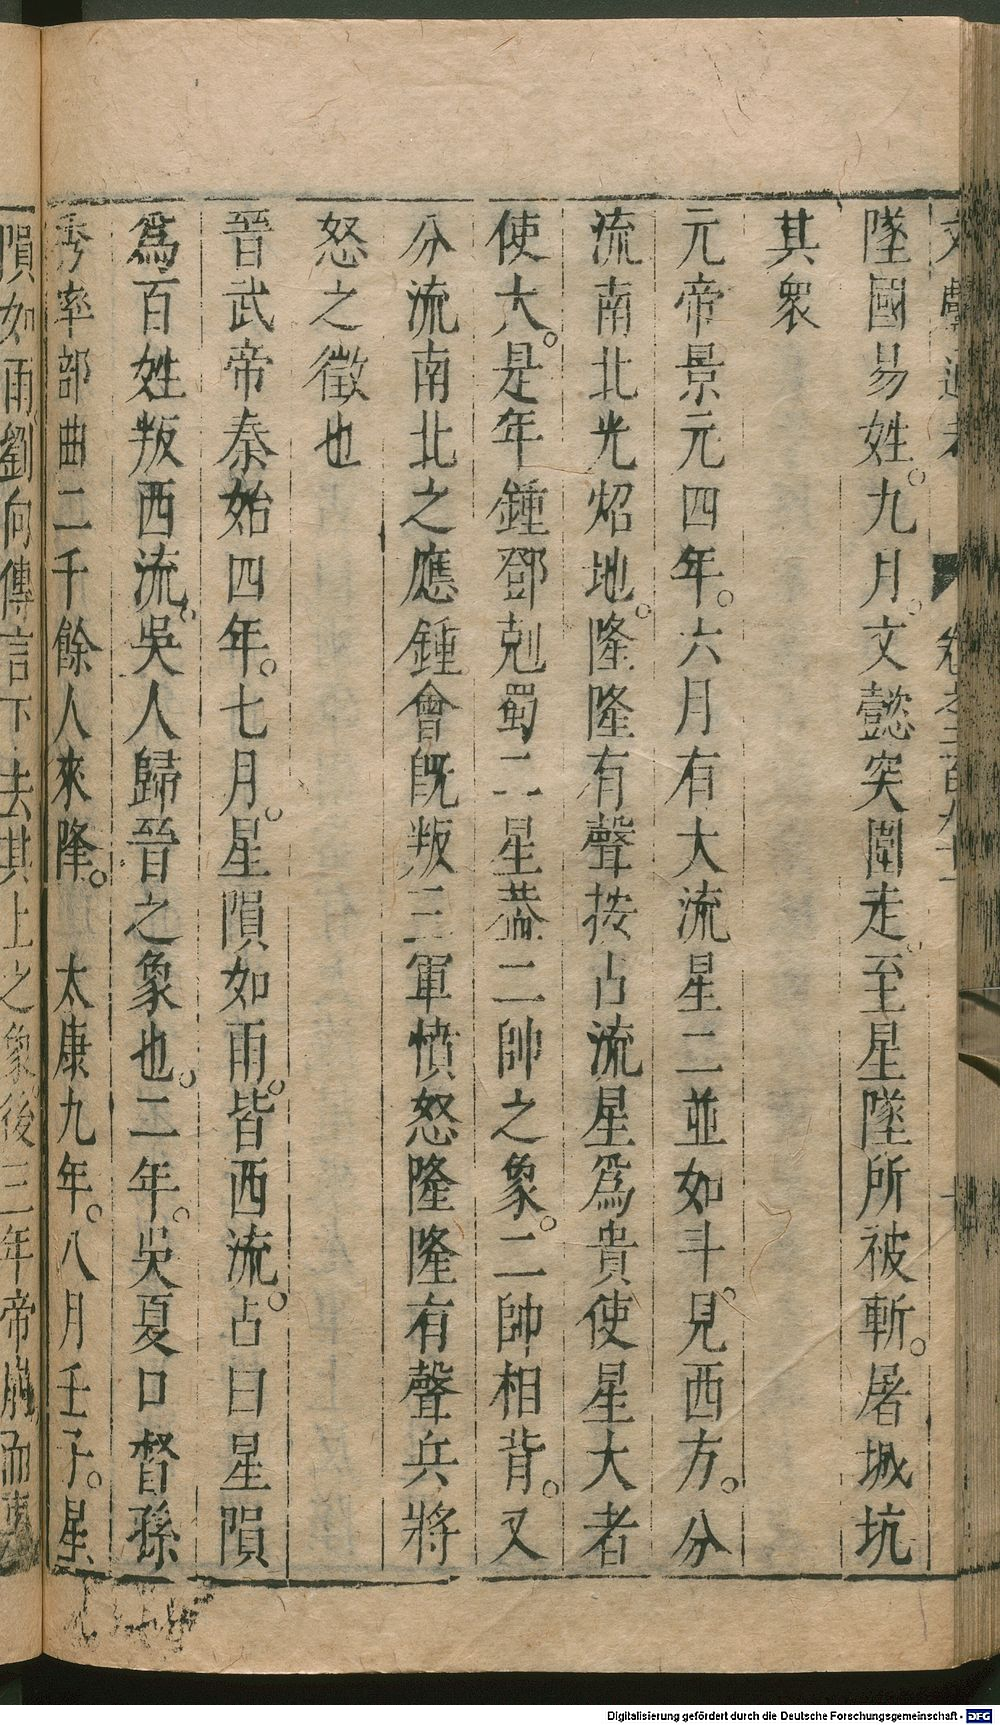 墜國易姓。九月。文懿突圍走。至星墜所被斬。屠城坑
其衆
元帝景元四年。六月有大流星二並如斗。見西方。分
流南北光炤地。隆隆有聲按占流星爲貴使星大者
使大。是年鍾鄧剋蜀二星葢二帥之象。二帥相背。又
分流南北之應鍾會旣叛三軍憤怒隆隆有聲兵將
怒之徵也
晉武帝泰始四年。七月。星隕如雨。皆西流。占曰星隕
爲百姓叛西流。吳人歸晉之象也。二年。吳夏口督孫
秀率部曲二千餘人來降。 太康九年。八月壬子。星
隕如雨劉向傳言下去其上之象後三年帝崩而
Digitalisierung gefördert durch die Deutsche Forschungsgemeinschaft - DFG